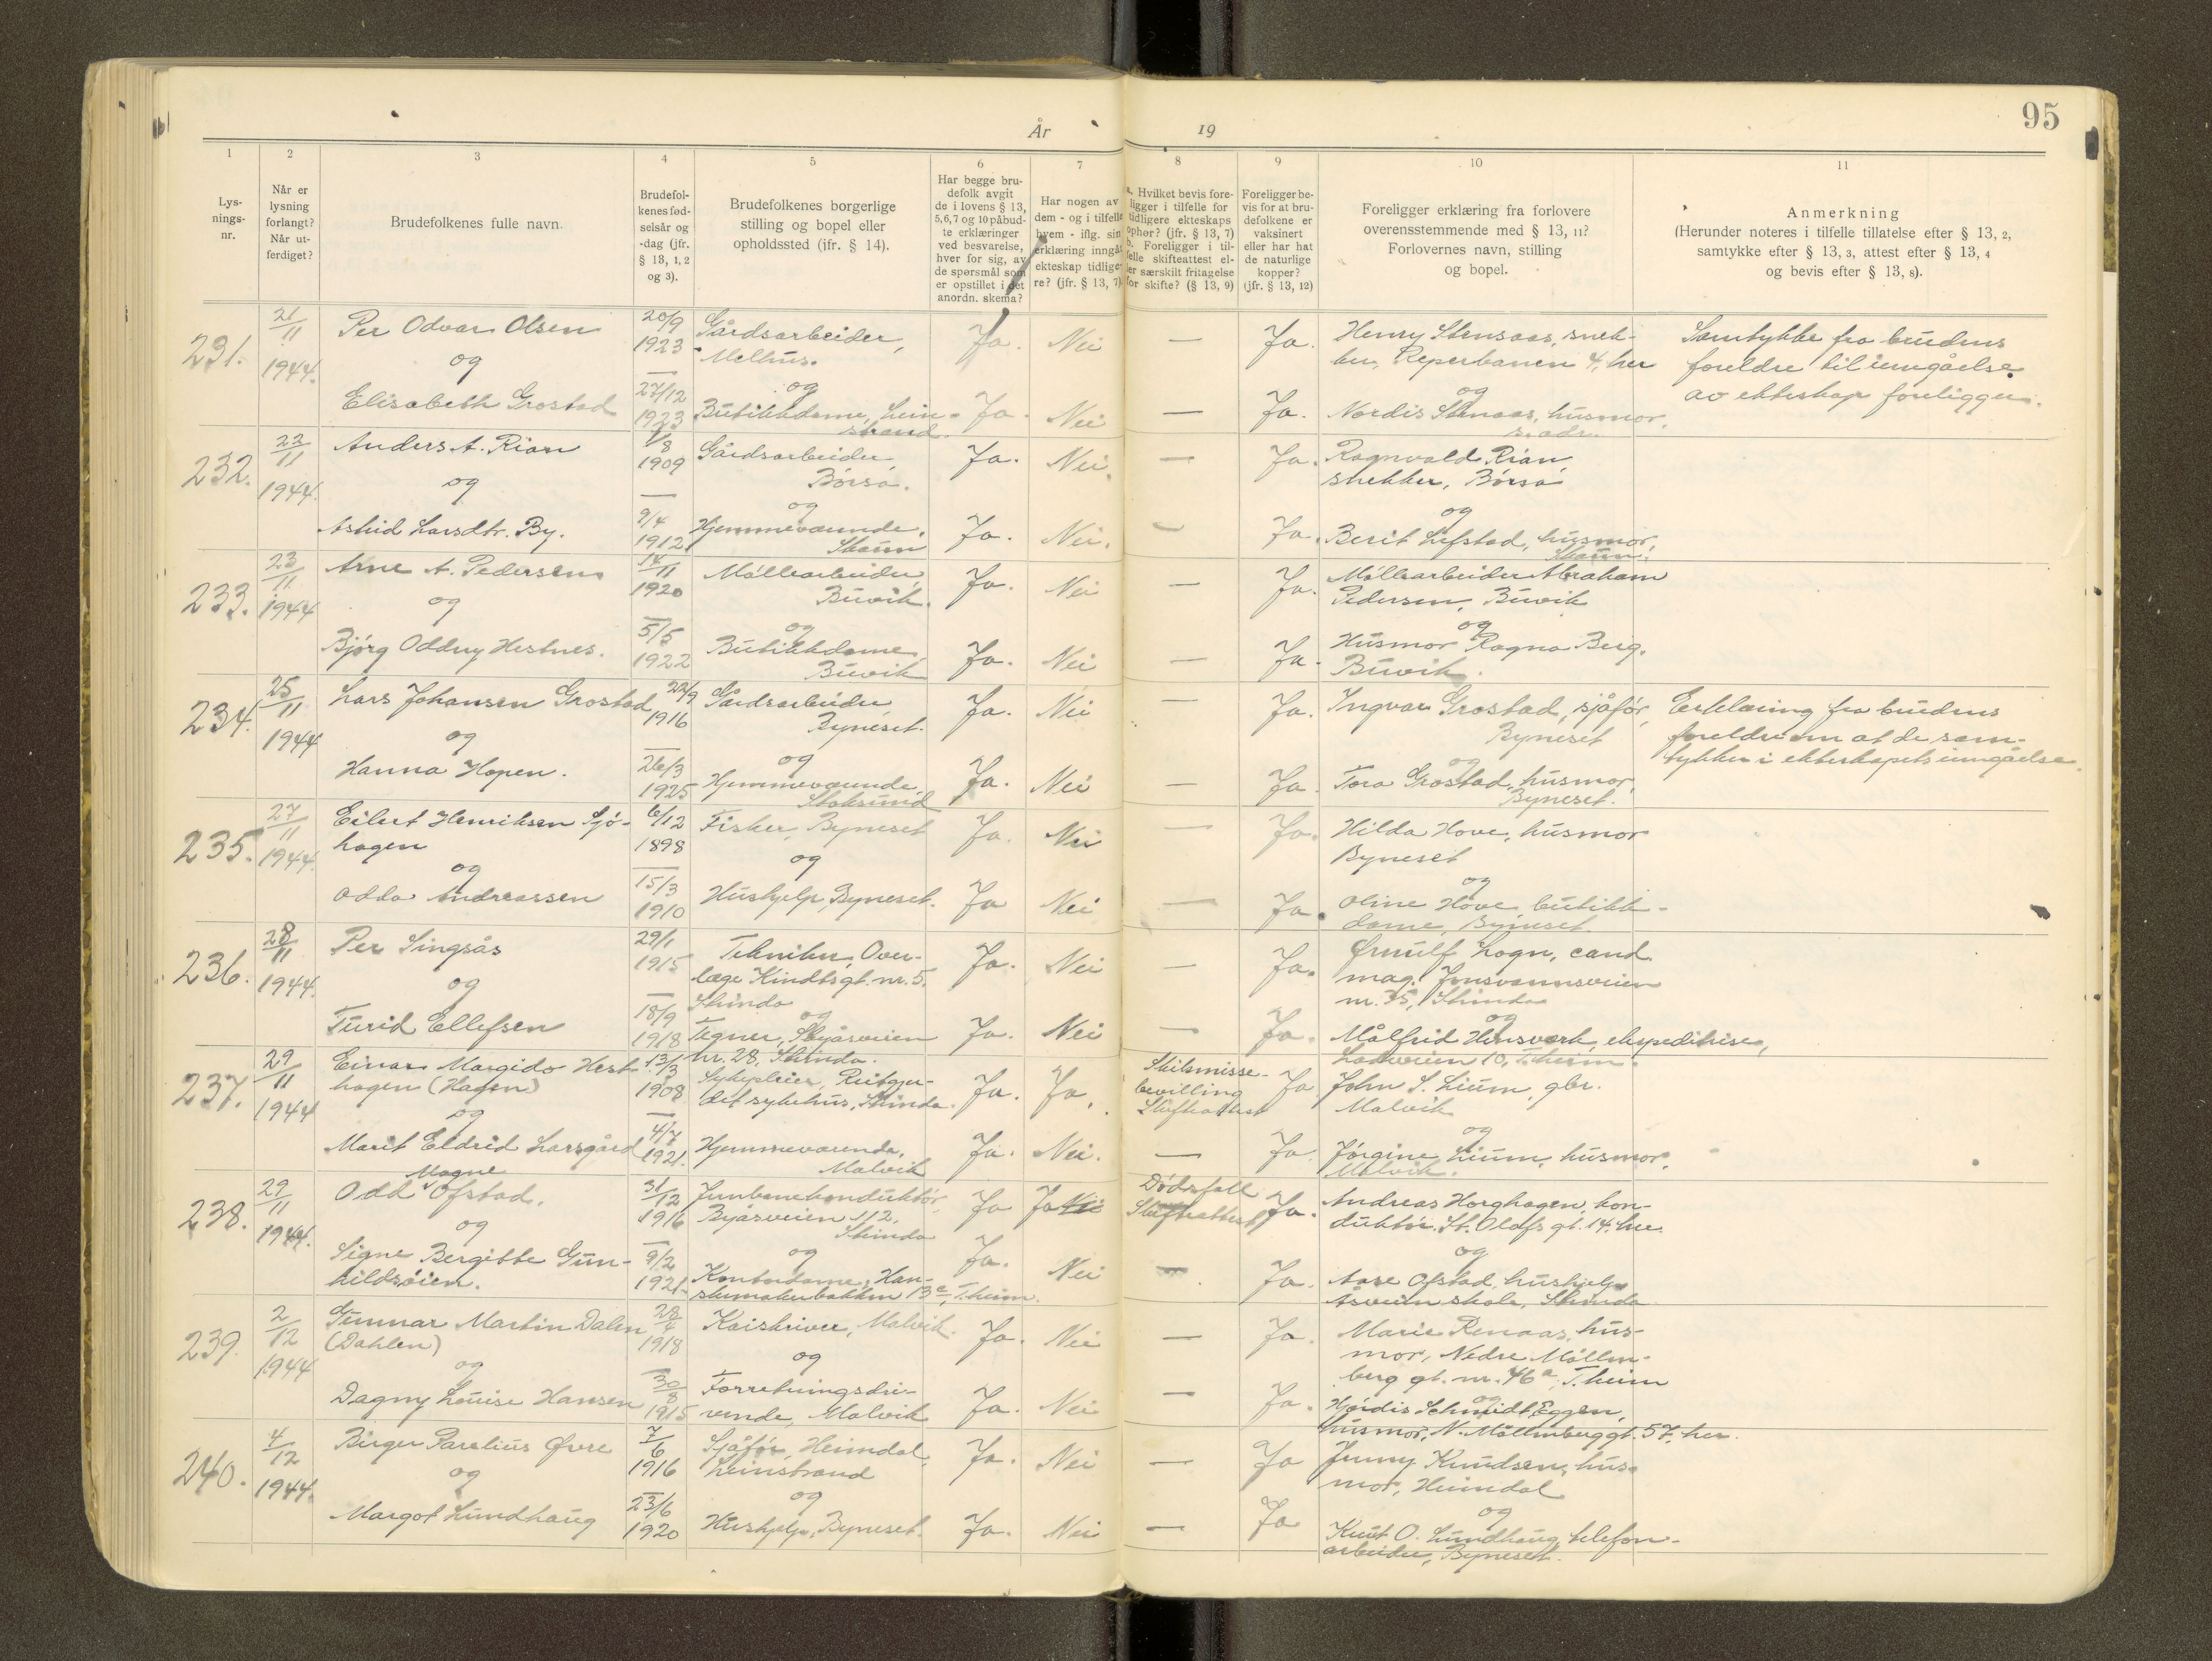 95
År
19
1 2 3 4 5 6 7 8 9 10 11
Lys-
nings-
nr.
Når er
lysning
forlangt?
Når ut-
ferdiget?
Brudefolkenes fulle navn.
Brudefol-
kenes fød-
selsår og
-dag (jfr.
§ 13, 1, 2
og 3).
Brudefolkenes borgerlige
stilling og bopel eller
opholdssted (jfr. § 14).
Har begge bru-
defolk avgit
de i lovens § 13,
5, 6, 7 og 10 påbud-
te erklæringer
ved besvarelse,
hver for sig, av
de spørsmål som
er opstillet i det
anordn. skema?
Har nogen av
dem - og i tilfelle
hvem - iflg. sin
erklæring inngåt
ekteskap tidlige-
re? (jfr. § 13, 7)
a. Hvilket bevis fore-
ligger i tilfelle for
tidligere ekteskaps
ophør? (jfr. § 13, 7)
b. Foreligger i til-
felle skifteattest el-
ler særskilt fritagelse
for skifte? (§ 13, 9)
Foreligger be-
vis for at bru-
defolkene er
vaksinert
eller har hat
de naturlige
kopper?
(jfr. § 13, 12)
Foreligger erklæring fra forlovere
overensstemmende med § 13, 11?
Forlovernes navn, stilling
og bopel.
Anmerkning
(Herunder noteres i tilfelle tillatelse efter § 13, 2,
samtykke efter § 13, 3, attest efter § 13, 4
og bevis efter § 13, 8).
231.
21/11
1944.
Per Odvar Olsen
og
Elisabeth Grostad
20/9
1923
27/12
1923
Gårdsarbeider,
Melhus.
og
Butikkdame, Lein-
strand.
Ja. Nei — Ja.
Ja. Nei — Ja.
Henry Stensaas, snek-
ker, Reperbanen 4, her
og
Nordis Stensaas, husmor,
s. adr.
Samtykke fra brudens
foreldre til inngåelse
av ekteskap foreligger.
232.
22/11
1944.
Anders A. Rian
og
Astrid Larsdtr. By.
1/8
1909
9/4
1912
Gårdsarbeider,
Börsa.
og
Hjemmeværende,
Skaun
Ja. Nei. — Ja.
Ja. Nei. — Ja.
Ragnvald Rian,
snekker, Börsa
og
Berit Lefstad, husmor,
Skaun.
233.
23/11
1944
Arne A. Pedersen
og
Bjørg Oddny Hestnes.
14/11
1920
5/5
1922
Möllearbeider,
Buvik.
og
Butikkdame,
Buvik
Ja. Nei — Ja.
Ja. Nei — Ja.
Möllearbeider Abraham
Pedersen, Buvik
og
Husmor Ragna Berg,
Buvik.
234.
25/11
1944
Lars Johansen Grostad
og
Hanna Hopen.
22/9
1916
26/3
1925
Gårdsarbeider,
Byneset.
og
Hjemmeværende,
Stoksund
Ja. Nei — Ja.
Ja. Nei — Ja.
Ingvar Grostad, sjåför,
Byneset
og
Tora Grostad, husmor,
Byneset.
Erklæring fra brudens
foreldre om at de sam-
tykker i ekteskapets inngåelse.
235.
27/11
1944.
Eilert Henriksen Sjö-
hagen
og
Odda Andreassen
6/12
1898
15/3
1910
Fisker, Byneset
og
Hushjelp, Byneset.
Ja. Nei — Ja.
Ja Nei — Ja.
Hilda Hove, husmor
Byneset
og
Oline Hove, butikk-
dame, Byneset.
236.
28/11
1944.
Per Singsås
og
Turid Ellefsen
29/1
1915
18/9
1918
Tekniker, Over-
læge Kindtsgt. nr. 5,
Strinda
og
Tegner,
nr. 28, Strinda.
Ja. Nei — Ja.
Ja. Nei — Ja.
Ørnulf Logn, cand.
mag. Jonsvannsveien
nr. 35, Strinda
og
Målfrid, ekspeditrise,
Ladeveien 10, T.heim.
237.
29/11
1944
Einar Margido Hest-
hagen (Hagen)
og
Marit Eldrid Larsgård
13/3
1908
4/7
1921.
Sykepleier, Reitgjer-
det sykehus, Strinda.
Hjemmeværende,
Malvik
Ja. Ja.
Skilsmisse-
bevilling
Skifteattest
Ja
Ja. Nei. — Ja
John S. Lium, gbr.
Malvik
og
Jörgine Lium, husmor,
Malvik.
238.
29/11
1944.
Magne
Odd Ofstad.
og
Signe Bergitte Gun-
hildsöien.
31/12
1916
9/2
1921
Jernbanekonduktör,
Byåsveien 112,
Strinda
og
Kontordame, Han-
skemakerbakken 13c, T.heim.
Ja Ja Nei
Dödsfall
Skifteattest
Ja.
Ja. Nei — Ja.
Andreas Horghagen, kon-
duktör, St. Olafs gt. 14, her
og
Aase Ofstad, hushjelp
Åsveien skole, Strinda
239.
2/12
1944
Gunnar Martin Dalen
(Dahlen)
og
Dagny Louise Hansen
1918
30/8
1915
Kaiskriver, Malvik.
og
Forretningsdri-
vende, Malvik
Ja. Nei — Ja.
Ja. Nei — Ja.
Marie Renaas, hus-
mor, Nedre Möllen-
berg gt. nr. 46a, T.heim
og
Hjördis Schmidt Eggen,
husmor, N. Möllenberggt. 57, her.
240.
4/12
1944.
Birger Parelius Øvre
og
Margot Lundhaug
7/6
1916
23/6
1920
Sjåför, Heimdal,
Leinstrand
og
Hushjelp, Byneset.
Ja. Nei — Ja
Ja. Nei — Ja
Jenny Knudsen, hus-
mor, Heimdal
og
Knut O. Lundhaug, telefon-
arbeider, Byneset.